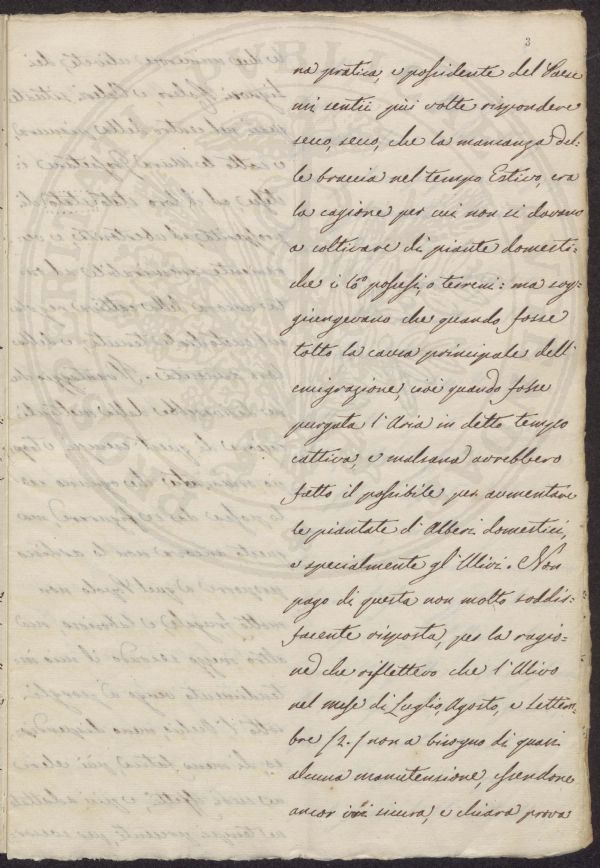 3
na pratica, e possidente del Paese
mi sentii più volte rispondere
seco, seco, che la mancanza del-
le braccia nel tempo Estivo, era
la cagione per cui non si davano
a coltivare di piante domesti-
che i lo.º possessi, o terreni: ma sog-
giungevano che quando fosse
tolto la causa principale dell'
emigrazione, cioè quando fosse
purgata l'Aria in detto tempo
cattiva, e malsana avrebbero
fatto il possibile per aumentare
le piantate d'Alberi domestici,
e specialmente gl'Ulivi. Non
pago di questa non molto soddis-
facente risposta, per la ragio-
ne che riflettevo che l'Ulivo
nel mese di Luglio, Agosto, e Settem-
bre /2./ non a bisogno di quasi
alcuna manutensione, essendone
ancor ivi sicura, e chiara prova